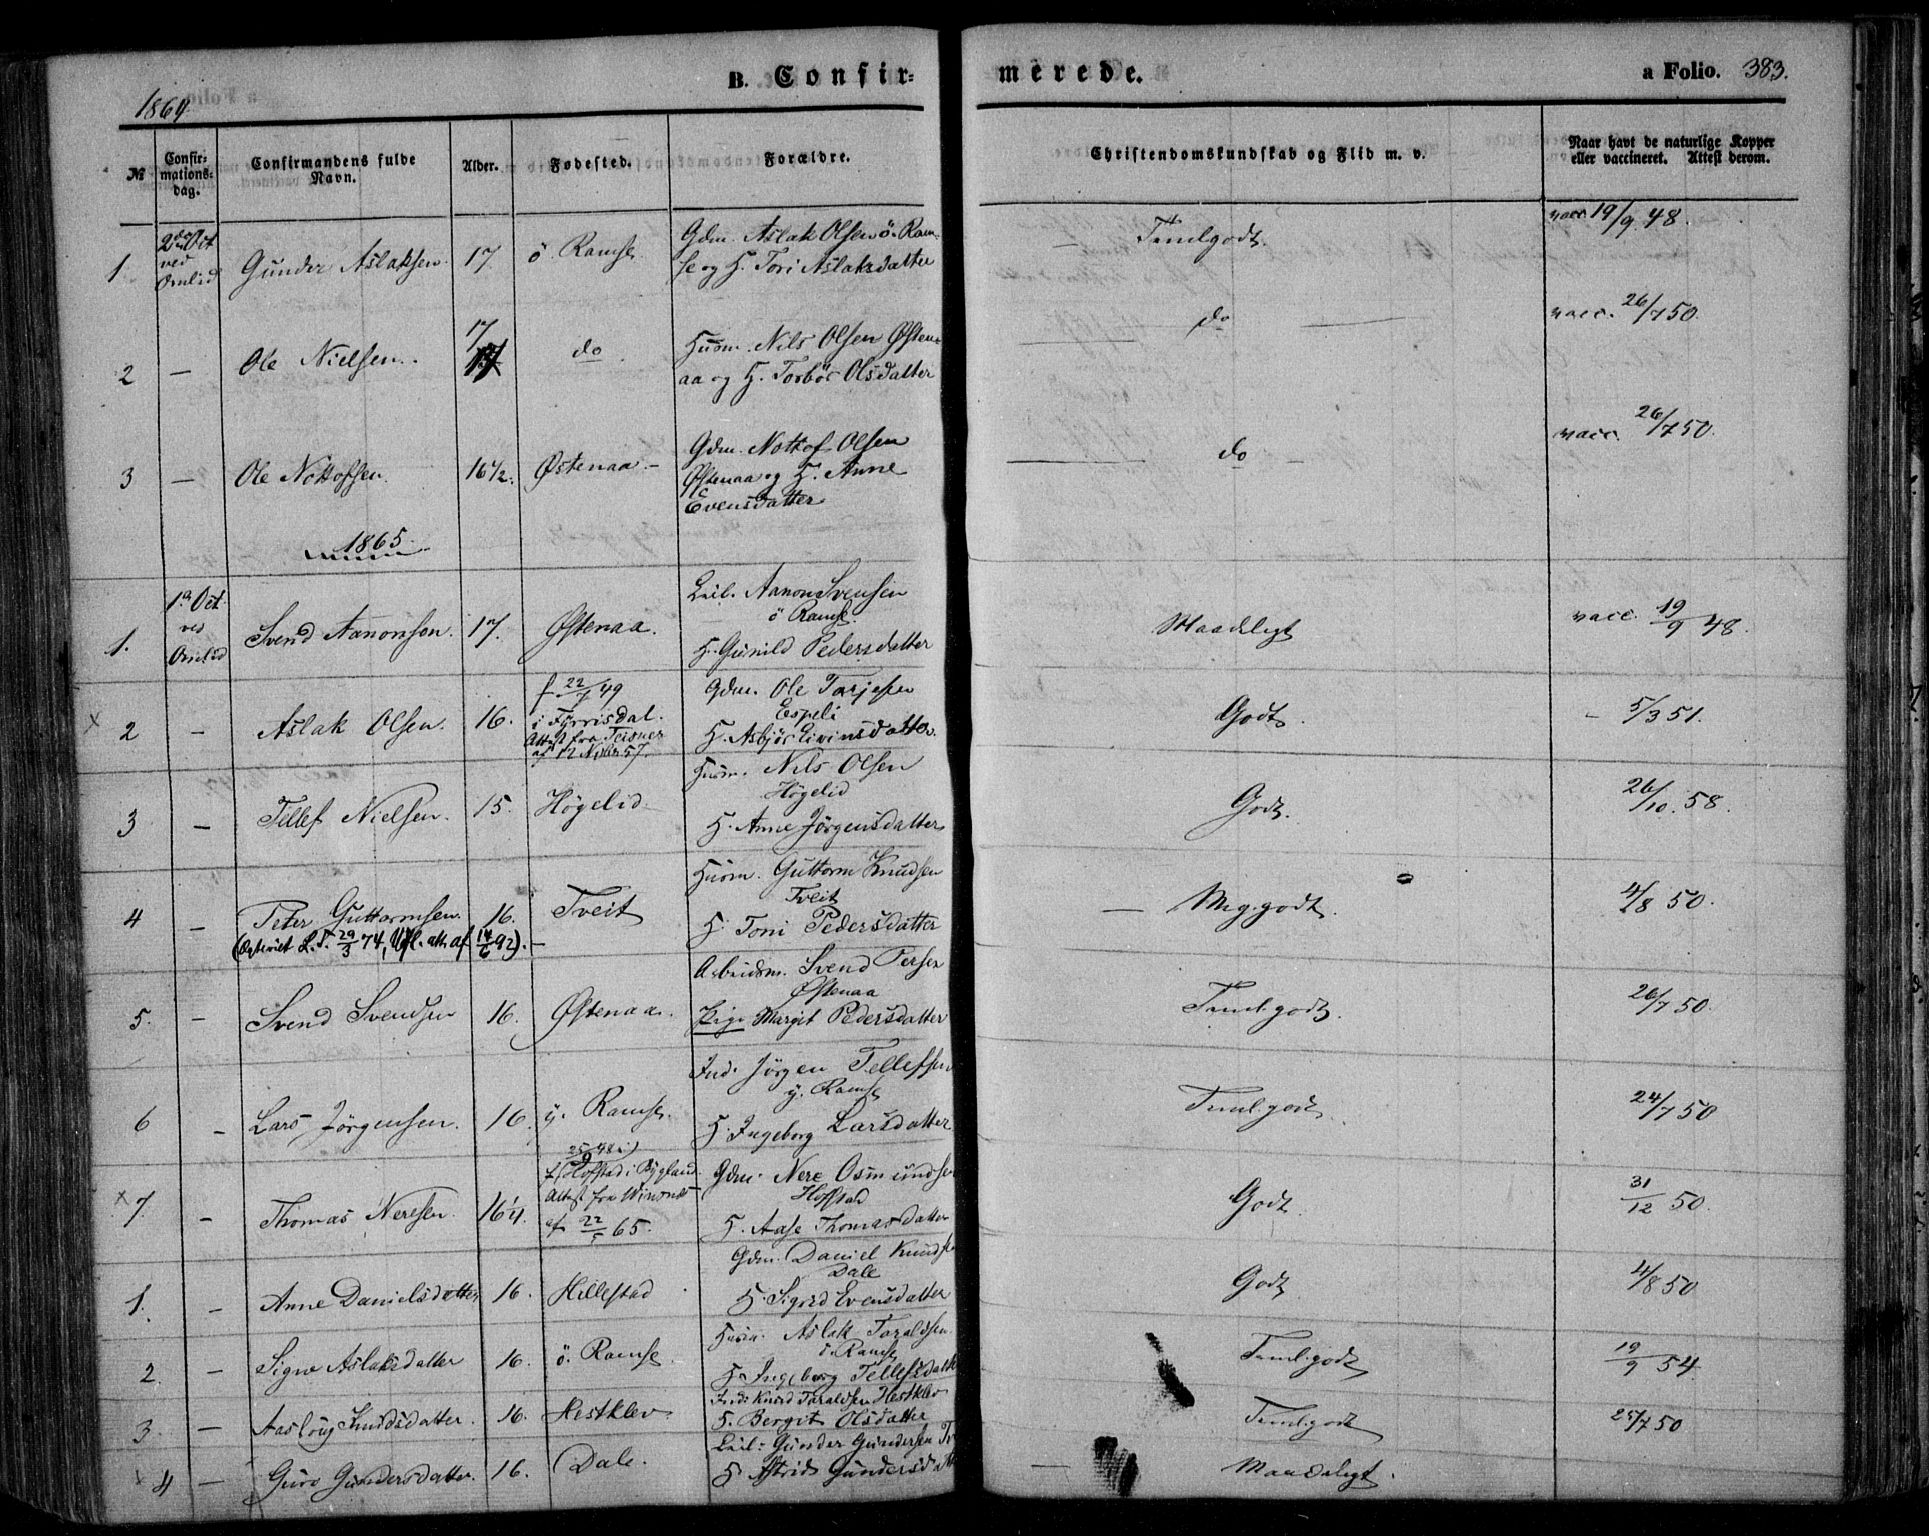 B. Confir-
merede.
a Folio. 383.
1864
№
Confir-
mations-
dag.
Confirmandens fulde
Navn.
Alder.
Fødested.
Forældre.
Christendomskundskab og Flid m. v.
Naar havt de naturlige Kopper
eller vaccineret. Attest derom.
1 2den Oct ved Omlid Gunder Aslaksen 17 ö. Ramse
Gdm. Aslak Olsen ö. Ram-
se og H. Tori Aslaksdatter
Temlgodt. vacc. 19/9 48.
2 — Ole Nielsen. 17 do
Huom. Nils Olsen Østen-
aa og H. Torbör Olsdatter
do vacc. 26/7 50.
3 — Ole Nottofsen. 16 1/2. Østenaa —
Gdm. Nottof Olsen
Østenaa og H. Anne
Evensdatter
do vacc. 26/7 50.
1865.
1. 1ste Oct. ved Omlid Svend Aanonson. 17. Østenaa.
Leil. Aanon Svensen
ö Ramse.
H. Gunild Pedersdatter
Maadeligt vacc. 19/9 48.
× 2 — Aslak Olsen. 16.
f 22/7 49
i Fyrrisdal.
Attest fra Teisner
af 12 Novbr 57.
Gdm. Ole Tarjesen
Espeli
H. Asbjör Eivinsdatter.
Godt. — 5/3 51.
3 — Tellef Nielsen. 15. Högelid
Huom. Nils Olsen
Högelid
H. Anne Jörgensdatter
Godt. 26/10. 58.
4 — Peter Guttormsen. 16. Tveit
(Egteviet L. T. 29/3 74, Ufl. att. af 14/6 92). —
Huom. Guttorm Knudsen
Tveit
H. Toni Pedersdatter
— Meg.godt. 4/8 50.
5. — Svend Svendsen 16. Østenaa.
Arbeidsm. Svend Persen
Østenaa
Pige Margit Pedersdatter
Teml.godt. 26/7 50.
6 — Lars Jörgensen. 16. y. Ramse.
Ind. Jörgen Tellefsen
y. Ramse
H. Ingeborg Larsdatter
Teml.godt. 24/7 50
× 7 — Thomas Neresen. 16 1/4.
25/9 48 i)
f (Hofstad i Bygland
Attest fra Winones
af 22/5 65.
Gdm. Nere Osmundsen
Hofstad
H. Aase Thomasdatter
Godt. 31/12 50.
1. — Anne Danielsdatter 16. Hillestad
Gdm. Daniel Knudsen
Dale
H. Sigrid Evensdatter
Godt 4/8 50
2. — Signe Aslaksdatter 16. ö. Ramse.
Huom. Aslak Taraldsen
ö. Ramse
H. Ingeborg Tellefsdatt
Teml.godt 19/9 54
3. — Aasloug Knudsdatter. 16. Hestklev
Ind. Knud Taraldsen Hestklev
H. Bergit Olsdatter
Teml.godt 25/7 50
× 4 — Guro Gundersdatter. 16. Dale.
Leil. Gunder Gundersen Tv
H. Astrid Gundersdatt
— Maadeligt.